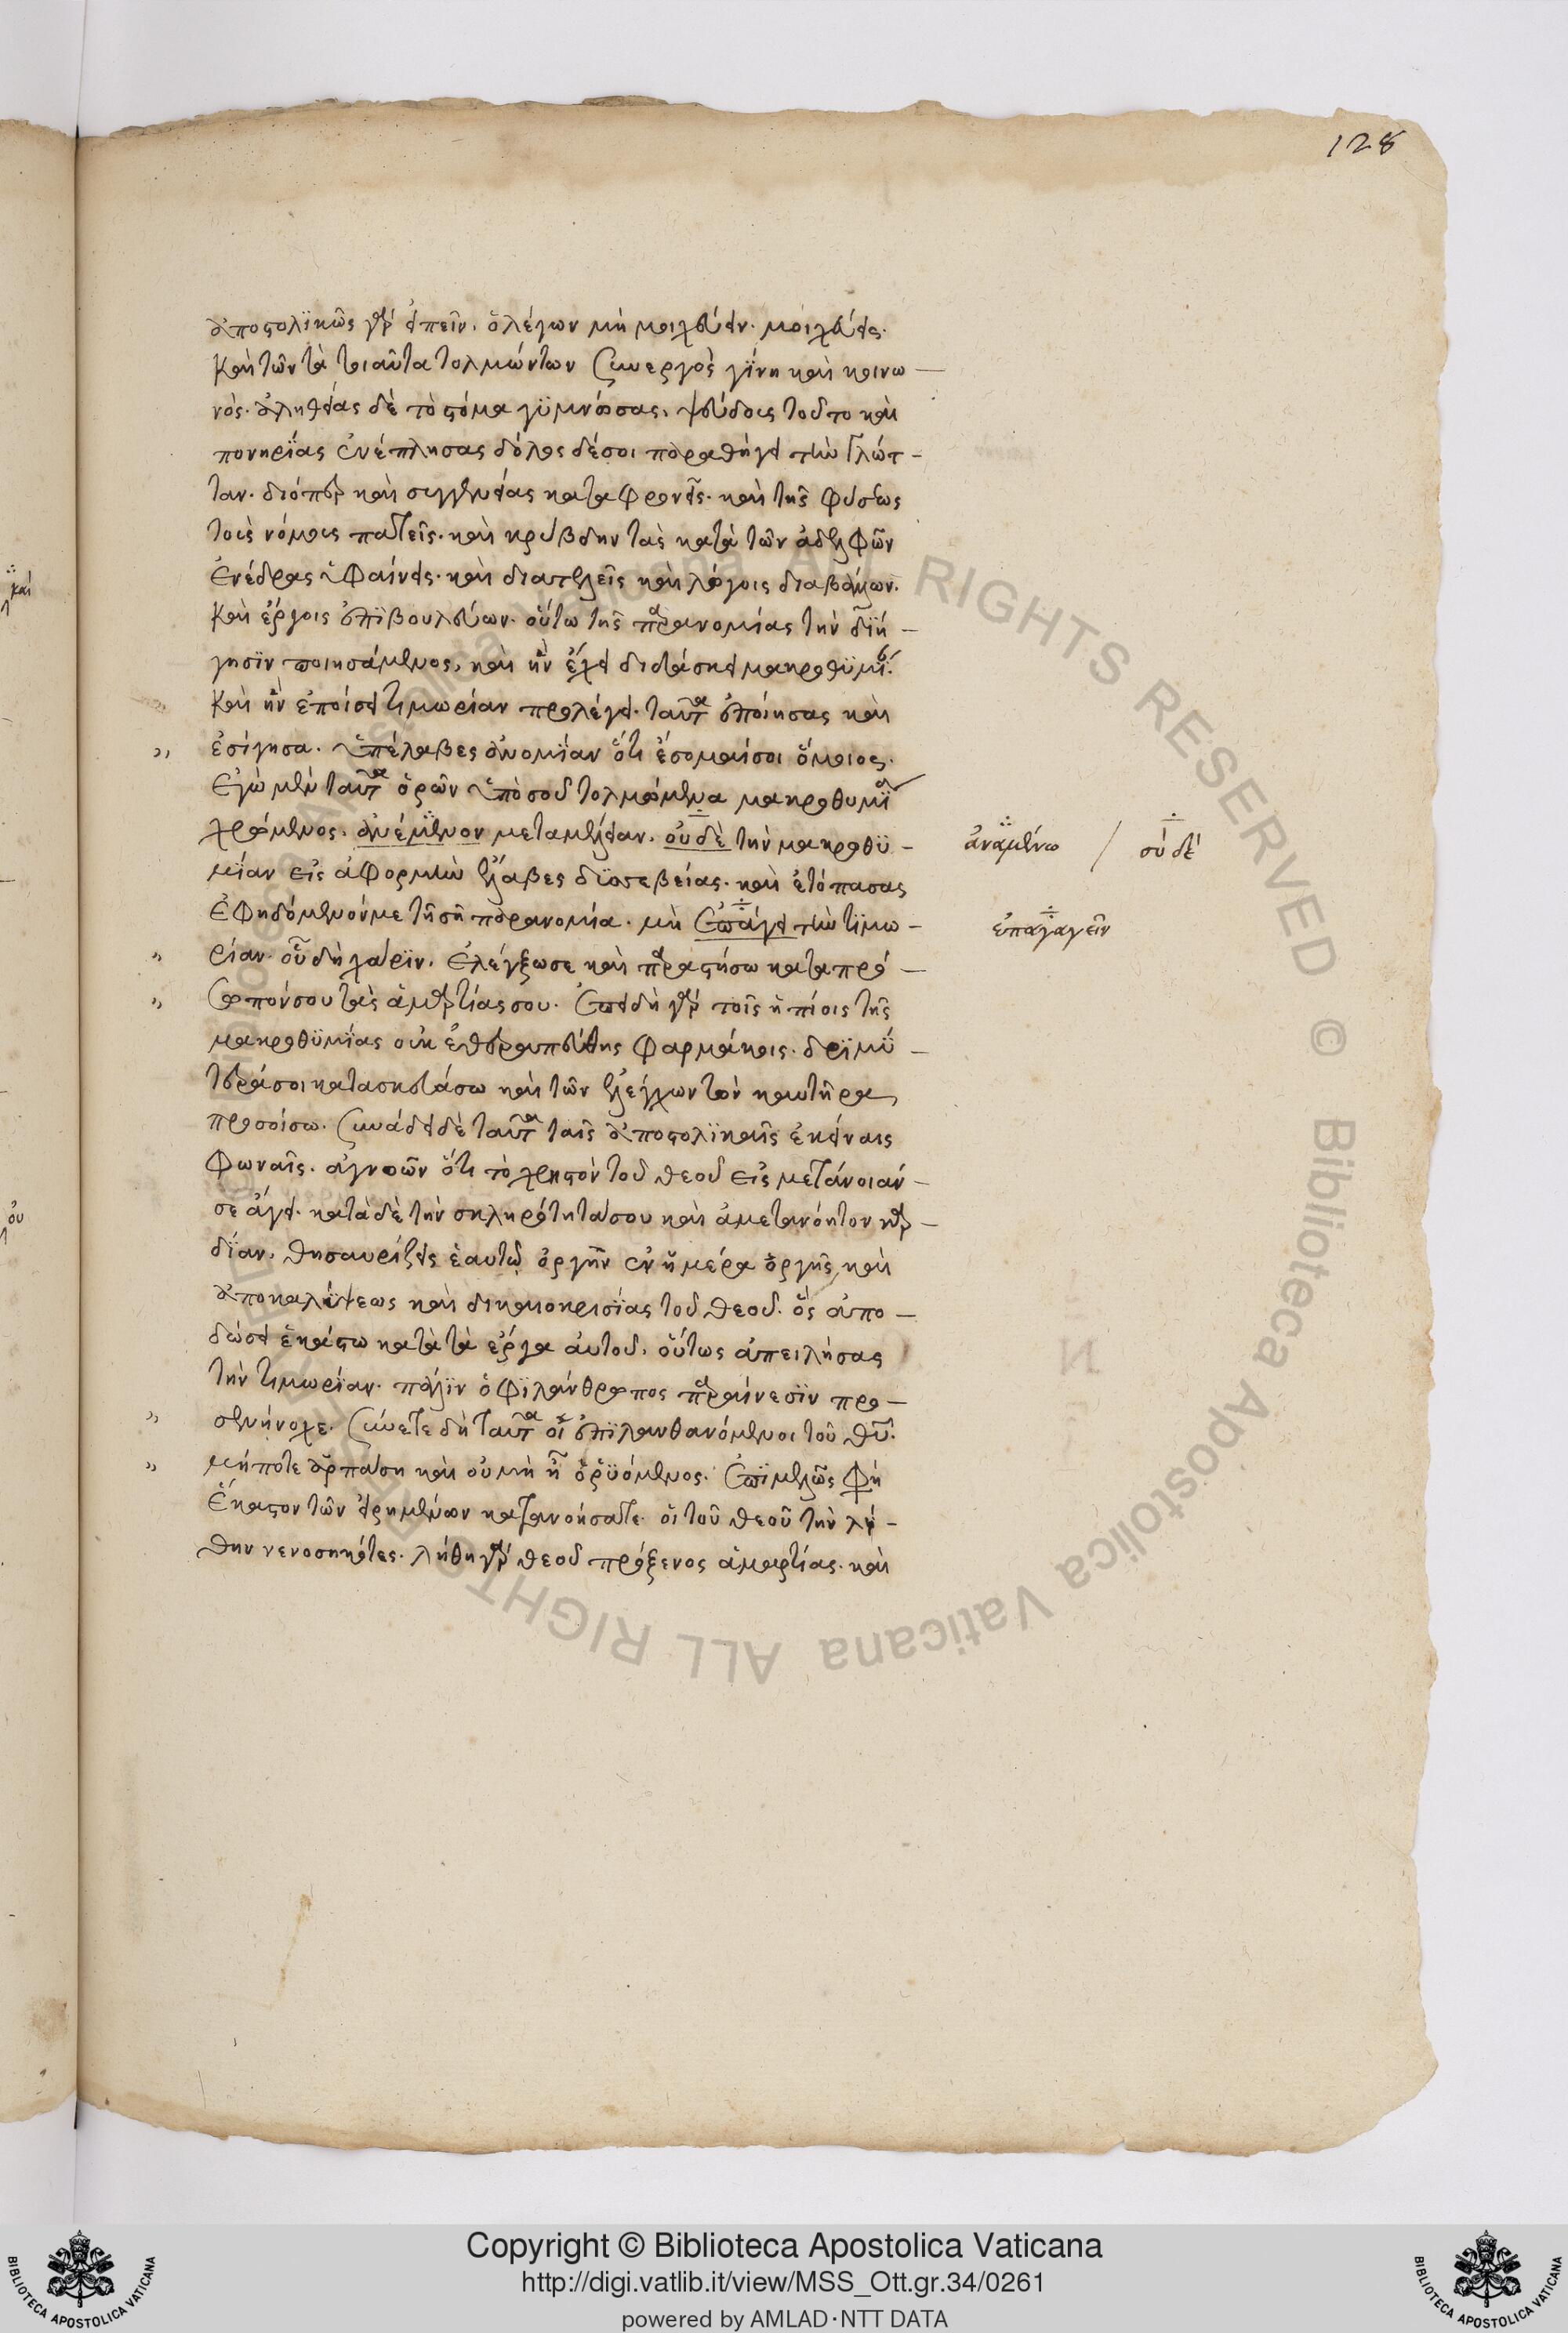 128
ἀποστολικῶς γὰρ εἰπεῖν. ὁ λέγων μὴ μοιχεύειν. μοιχεύεις.
καὶ τῶν τὰ τοιαῦτα τολμώντων συνεργὸς γίνη καὶ κοινω
νός. ἀληθείας δὲ τὸ στόμα γυμνώσας, ψεύδους τοῦτο καὶ
πονηρίας ἐνέπλησας δόλος δέ σοι παραθήγει τὴν γλῶτ
ταν. διόπερ καὶ συγγενείας καταφρονεῖς. καὶ τῆς φύσεως
τοὺς νόμους πατεῖς. καὶ κρύβδην τὰς κατὰ τῶν ἀδελφῶν
ἐνέδρας ὑφαίνεις. καὶ διατελεῖς καὶ λόγοις διαβάλλων.
καὶ ἔργοις ἐπιβουλεύων. οὕτω τῆς παρανομίας τὴν διή
γησιν ποιησάμενος, καὶ ἣν ἔχει διδάσκει μακροθυμίαν.
καὶ ἣν ἐποίσει τιμωρίαν προλέγει. ταῦτα ἐποίησας καὶ
ἐσίγησα. ὑπέλαβες ἀνομίαν ὅτι ἔσομαί σοι ὅμοιος.
ἐγὼ μὲν ταῦτα ὁρῶν ὑπὸ σοῦ τολμώμενα μακροθυμία
χρώμενος. ἀνέμενον μεταμέλειαν. οὐδὲ τὴν μακροθυ
μίαν εἰς ἀφορμὴν ἔλαβες δυσσεβείας. καὶ ἐτόπασας
ἐφηδόμενόν με τῆ σῆ παρανομία. μὴ ἐπάγει τὴν τιμω
ρίαν. οὗ δὴ χάριν. ἐλέγξω σε καὶ παραστήσω κατὰ πρό
σωπόν σου τὰς ἁμαρτίας σου. ἐπειδὴ γὰρ τοῖς ἠπίοις τῆς
μακροθυμίας οὐκ ἐθεραπεύθης φαρμάκοις. δριμύ
τερά σοι κατασκευάσω καὶ τῶν ἐλέγχων τὸν καυτῆρα
προσοίσω. συνάδει δὲ ταῦτα ταῖς ἀποστολικαῖς ἐκείναις
φωναῖς. ἀγνοῶν ὅτι τὸ χρηστὸν τοῦ θεοῦ εἰς μετάνοιάν
σε ἄγει. κατὰ δὲ τὴν σκληρότητά σου καὶ ἀμετανόητον καρ
δίαν. θησαυρίζεις ἑαυτῷ ὀργὴν ἐν ἡμέρα ὀργῆς καὶ
ἀποκαλύψεως καὶ δικαιοκρισίας τοῦ θεοῦ. ὃς ἀπο
δώσει ἑκάστω κατὰ τὰ ἔργα αὐτοῦ. οὕτως ἀπειλήσας
τὴν τιμωρίαν. πάλιν ὁ φιλάνθρωπος παραίνεσιν προ
σενήνοχε. σύνετε δὴ ταῦτα οἱ ἐπιλανθανόμενοι τοῦ θυ.
μήποτε ἁρπάση καὶ οὐ μὴ ἦ ὁ ῥυόμενος. ἐπιμελῶς φη
ἕκαστον τῶν εἰρημένων κατανοήσατε. οἱ τοῦ θεοῦ τὴν λή
θην νενοσηκότες. λήθη γὰρ θεοῦ πρόξενος ἁμαρτίας. καὶ
ἀναμένω / σὺ δὲ
ἐπαγαγεῖν
καὶ
οὐ
© Biblioteca Apostolica Vaticana ALL RIGHTS RESERVED © Biblioteca Apostolica Vaticana ALL RIGHTS RESERVED
Copyright © Biblioteca Apostolica Vaticana
http://digi.vatlib.it/view/MSS_Ott.gr.34/0261
powered by AMLAD·NTT DATA
BIBLIOTECA APOSTOLICA VATICANA
BIBLIOTECA APOSTOLICA VATICANA